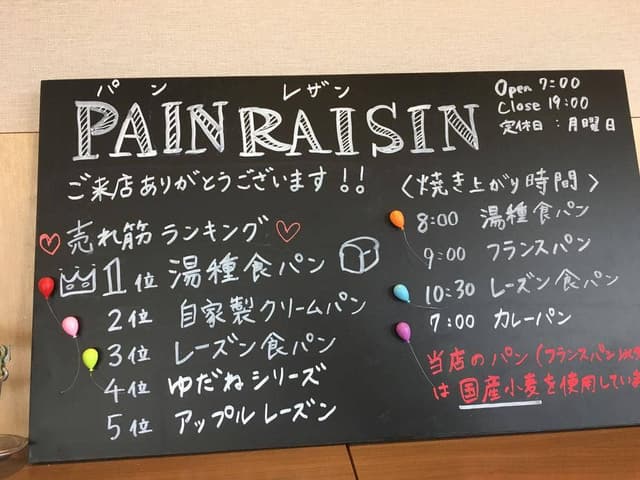 パン レザン
PAIN RAISIN
Open 7:00
Close 19:00
定休日：月曜日
ご来店ありがとうございます!!
売れ筋ランキング
1位 湯種食パン
2位 自家製クリームパン
3位 レーズン食パン
4位 ゆだねシリーズ
5位 アップルレーズン
〈焼き上がり時間〉
8:00 湯種食パン
9:00 フランスパン
10:30 レーズン食パン
7:00 カレーパン
当店のパン(フランスパン
は国産小麦を使用していま